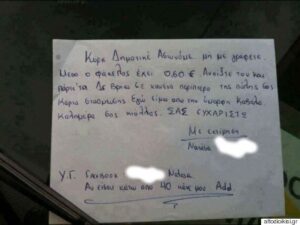 Κυριε Δημοτικέ Αστυνόμε μη με γραψετε.
Μεσα ο φακελος έχει 0,60 €. Ανοιξτε τον και
παρτε τα. Δε βρηκα σε κανένα περίπτερο της πόλης σας
Καρτα σταθμευσης Εγώ είμαι απο την όμορφη Καβάλα
Καλημερα σας ΣΑΣ ΕΥΧΑΡΙΣΤΩ
Με εκτίμηση
Νατάσα
Υ.Γ. Facebook Νατασα
Αν εισαι κάτω απο 40 κάνε μου Add.
afoslokiel.gr